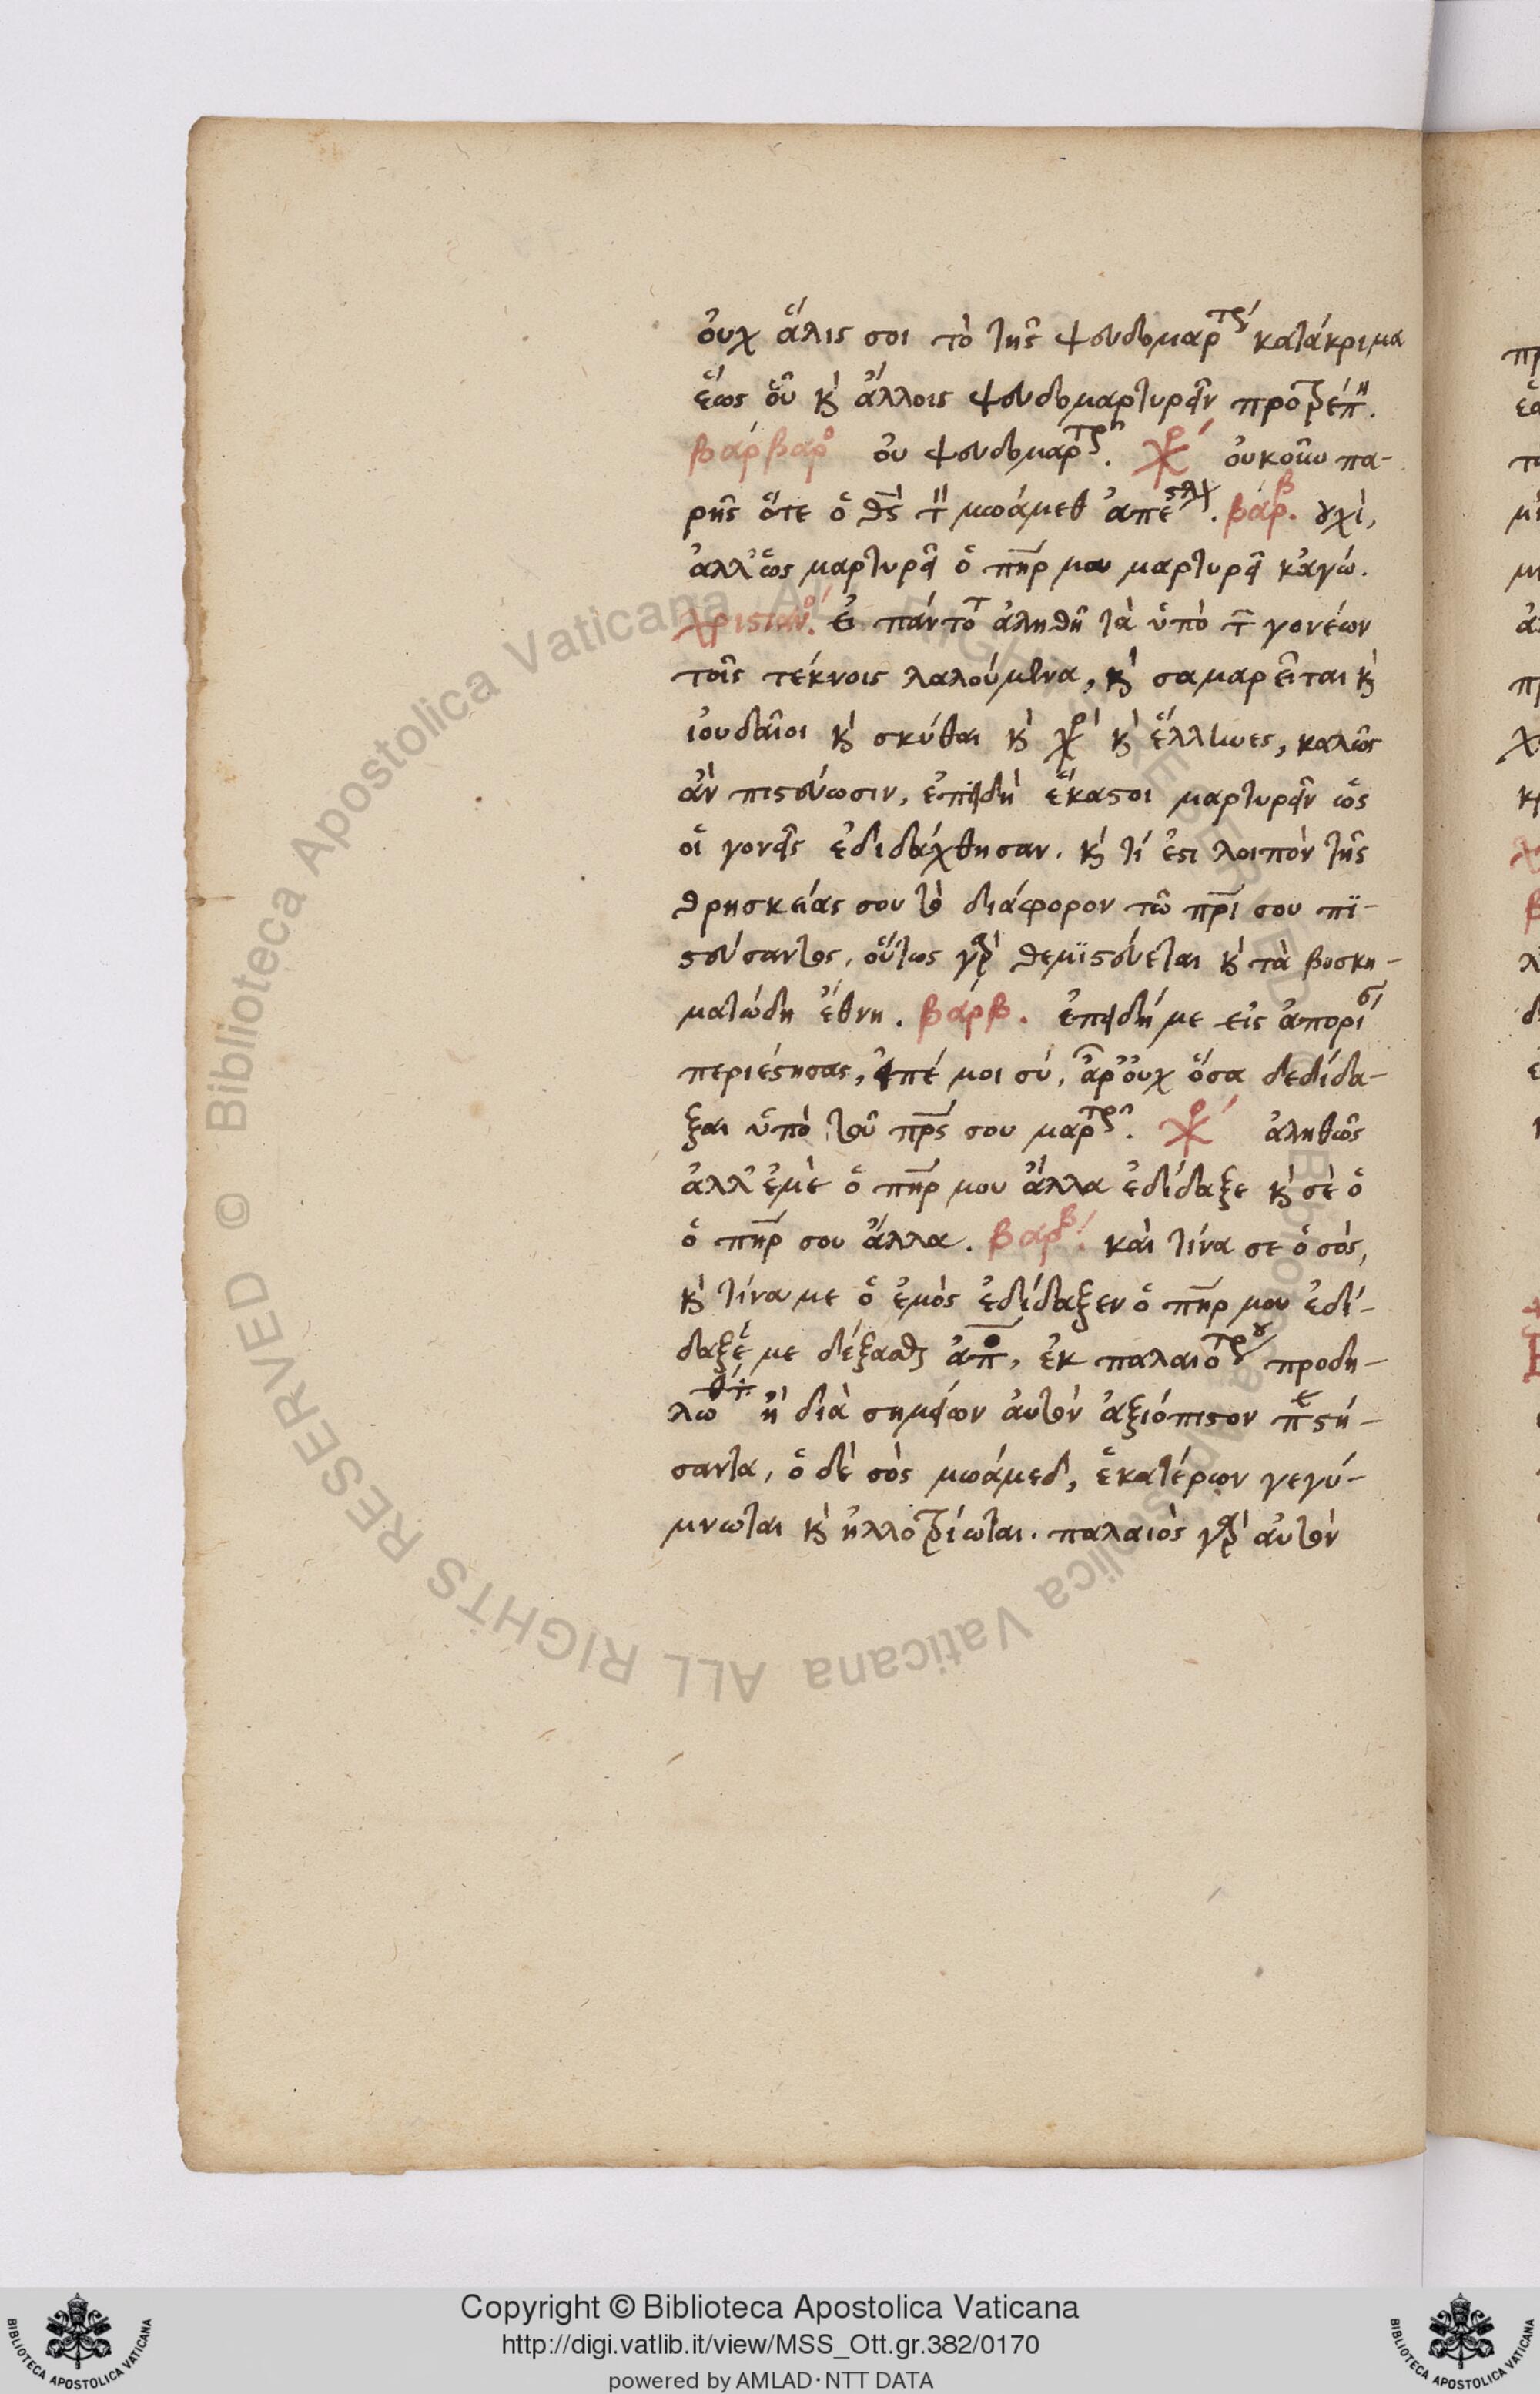 οὐχ ἅλις σοι τὸ τῆς ψευδομαρτρ´ κατάκριμα
ἕως οὗ κ̀ ἄλλοις ψευδομαρτυρεῖν προτρέπη.
βάρβαρο οὐ ψευδομαρτρ. χρ´ οὐκοῦν πα-
ρῆς ὅτε ὁ θς̅ τ μωάμεθ ἀπέστλ. βάρβ. οὐχὶ,
ἀλλ' ὡς μαρτυρεῖ ὁ πη̅ρ μου μαρτυρῶ κἀγώ.
χριστιανο´. εἰ πάντοτ ἀληθῆ τὰ ὑπὸ τ̅ γονέων
τοῖς τέκνοις λαλούμενα, κ̀ σαμαρεῖται κ̀
ἰουδαῖοι κ̀ σκύθαι κ̀ χρ κ̀ ἕλληνες, καλῶς
ἂν πιστεύωσιν, ἐπειδὴ ἕκαστοι μαρτυρεῖν ὡς
οἱ γονεῖς ἐδιδάχθησαν. κ̀ τί ἐστι λοιπὸν τῆς
θρησκείας σου τὸ διάφορον τῶ πρ̅ι σου πϊ-
στεύσαντος, οὕτως γρ̀ θεμϊστεύεται κ̀ τὰ βοσκη-
ματώδη ἔθνη. βάρβ. ἐπειδή με εἰς ἀπορί
περιέστησας, εἰπέ μοι σύ, ἆρ' οὐχ ὅσα δεδίδα-
ξαι ὑπὸ τοῦ πρ̅ς σου μαρτρ. χρ´ ἀληθῶς
ἀλλ' ἐμὲ ὁ πη̅ρ μου ἄλλα ἐδίδαξε κ̀ σὲ ὁ
ὁ πη̅ρ σου ἄλλα. βαρβ. καὶ τίνα σε ὁ σὸς,
κ̀ τίνα με ὁ ἐμὸς ἐδίδαξεν ὁ πη̅ρ μου ἐδί-
δαξέ με δέξασθ ἀπ̅, ἐκ παλαιοτρου προδη-
λωθτ. ἢ διὰ σημείων αὐτὸν ἀξιόπιστον π̅στή-
σαντα, ὁ δὲ σὸς μωάμεδ, ἑκατέρων γεγύ-
μνωται κ̀ ἠλλοτρίωται. παλαιὸς γρ̀ αὐτὸν
Copyright © Biblioteca Apostolica Vaticana
http://digi.vatlib.it/view/MSS_Ott.gr.382/0170
powered by AMLAD·NTT DATA
BIBLIOTECA APOSTOLICA VATICANA
BIBLIOTECA APOSTOLICA VATICANA
© Biblioteca Apostolica Vaticana ALL RIGHTS RESERVED
© Biblioteca Apostolica Vaticana ALL RIGHTS RESERVED